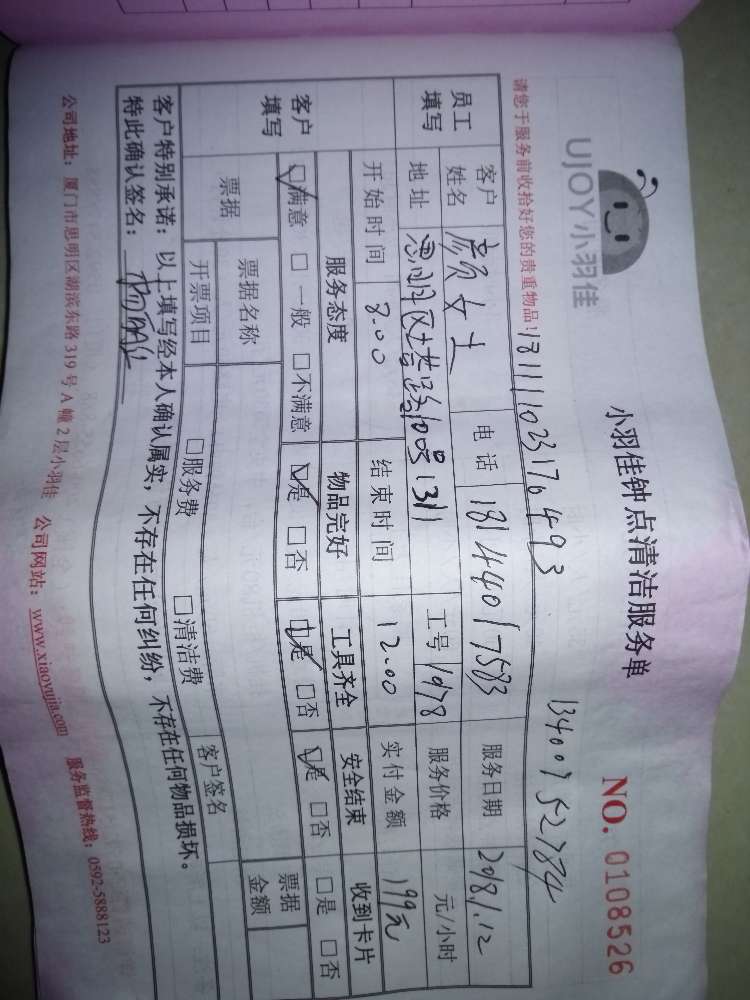 UJOY小羽佳
小羽佳钟点清洁服务单
NO. 0108526
13400752784
请您于服务前收拾好您的贵重物品!
181111023176493
员工填写
客户姓名 女士 电话 18144017583 服务日期 2018.1.12
地址 思明区 1311 工号 1978 服务价格 元/小时
开始时间 8.00 结束时间 12.00 实付金额 199元
客户填写
服务态度 物品完好 工具齐全 安全结束 收到卡片
□满意 □一般 □不满意 □是 □否 □是 □否 □是 □否 □是 □否
票据 票据名称 票据金额
开票项目 □服务费 □清洁费 客户签名
客户特别承诺：以上填写经本人确认属实，不存在任何纠纷，不存在任何物品损坏。
特此确认签名：
公司地址：厦门市思明区湖滨东路319号A幢2层小羽佳 公司网站：www.xiaoyujia.com 服务监督热线：0592-5888123